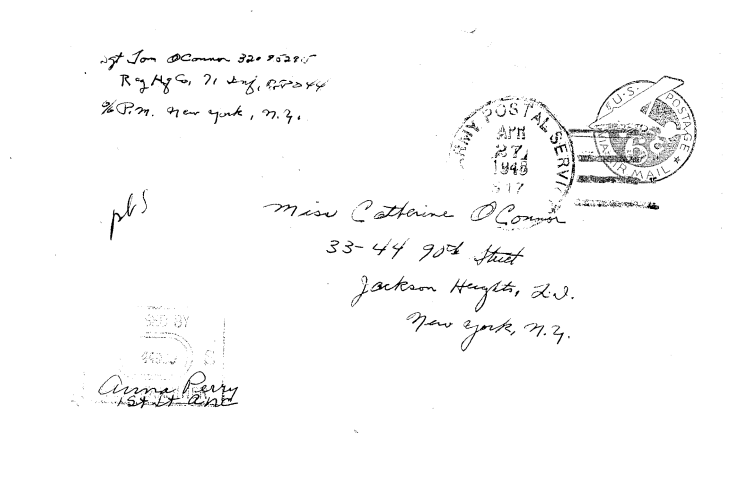 Sgt Tom O'Connor 320
Reg Hq Co, 71 Inf, APO 44
c/o P.M. New York, N.Y.
ARMY POSTAL SERVICE
APR
27
U.S. POSTAGE
6c
VIA AIR MAIL
Miss Catherine O'Connor
33-44 90th Street
Jackson Heights, L.I.
New York, N.Y.
SED BY
Anna Perry
1st Lt ANC